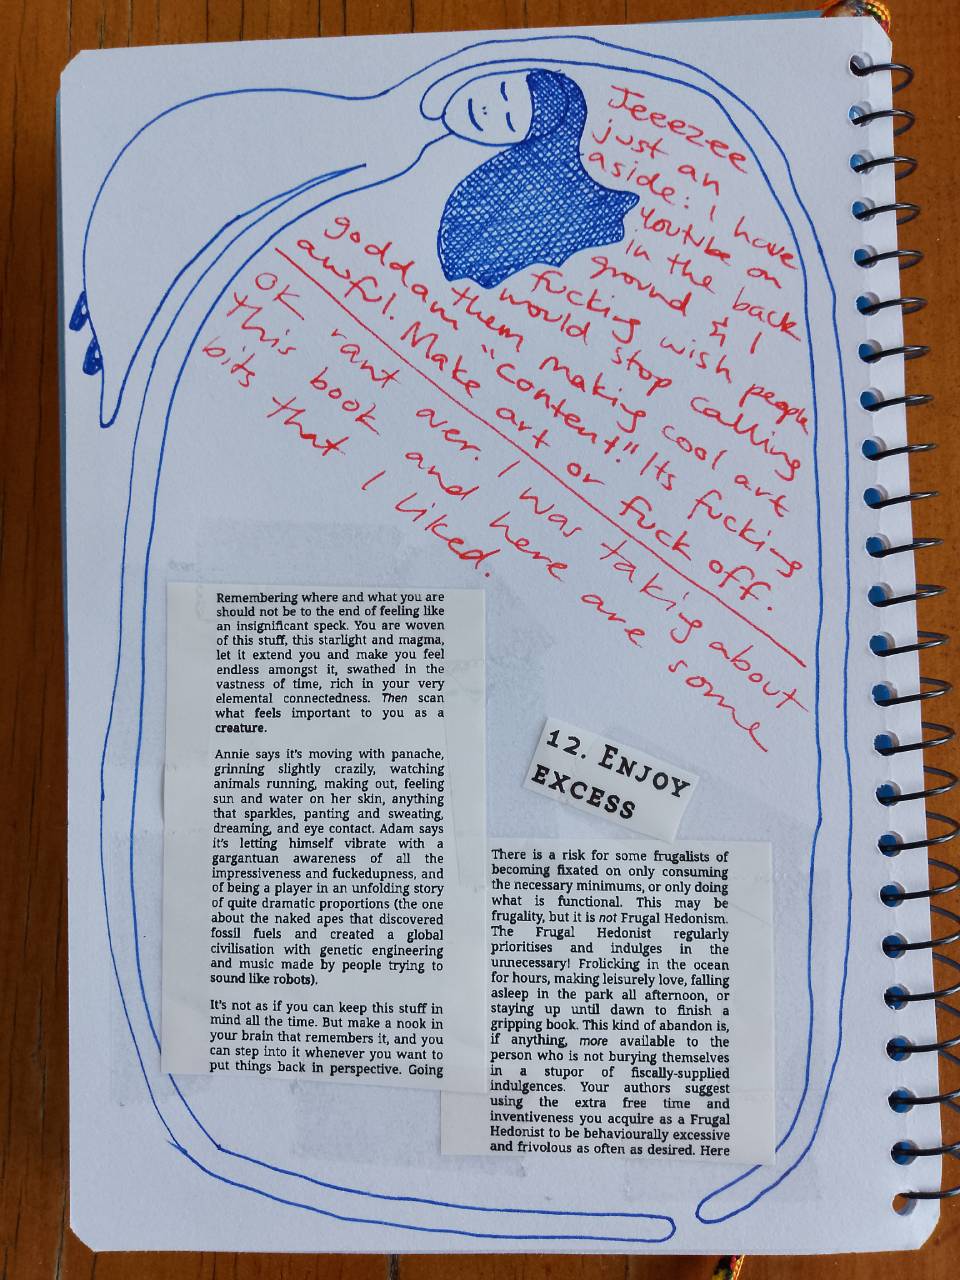 Jeeezee
just an
aside: I have
youtube on
in the back
ground & I
fucking wish people
would stop calling
them making cool art
goddam "content." Its fucking
awful. Make art or fuck off.
OK rant over. I was taking about
this book and here are some
bits that I liked.
Remembering where and what you are
should not be to the end of feeling like
an insignificant speck. You are woven
of this stuff, this starlight and magma,
let it extend you and make you feel
endless amongst it, swathed in the
vastness of time, rich in your very
elemental connectedness. Then scan
what feels important to you as a
creature.
Annie says it's moving with panache,
grinning slightly crazily, watching
animals running, making out, feeling
sun and water on her skin, anything
that sparkles, panting and sweating,
dreaming, and eye contact. Adam says
it's letting himself vibrate with a
gargantuan awareness of all the
impressiveness and fuckedupness, and
of being a player in an unfolding story
of quite dramatic proportions (the one
about the naked apes that discovered
fossil fuels and created a global
civilisation with genetic engineering
and music made by people trying to
sound like robots).
It's not as if you can keep this stuff in
mind all the time. But make a nook in
your brain that remembers it, and you
can step into it whenever you want to
put things back in perspective. Going
12. ENJOY
EXCESS
There is a risk for some frugalists of
becoming fixated on only consuming
the necessary minimums, or only doing
what is functional. This may be
frugality, but it is not Frugal Hedonism.
The Frugal Hedonist regularly
prioritises and indulges in the
unnecessary! Frolicking in the ocean
for hours, making leisurely love, falling
asleep in the park all afternoon, or
staying up until dawn to finish a
gripping book. This kind of abandon is,
if anything, more available to the
person who is not burying themselves
in a stupor of fiscally-supplied
indulgences. Your authors suggest
using the extra free time and
inventiveness you acquire as a Frugal
Hedonist to be behaviourally excessive
and frivolous as often as desired. Here